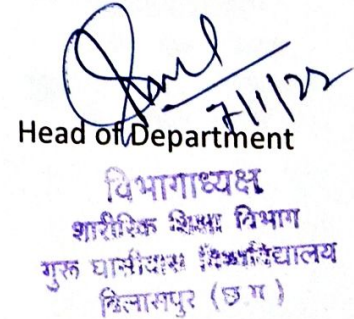 7/1/22
Head of Department
विभागाध्यक्ष
शारीरिक शिक्षा विभाग
गुरू घासीदास विश्वविद्यालय
बिलासपुर (छ.ग.)